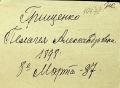 Грищенко
Пелагея Александровна
1898
8е Марта - 87